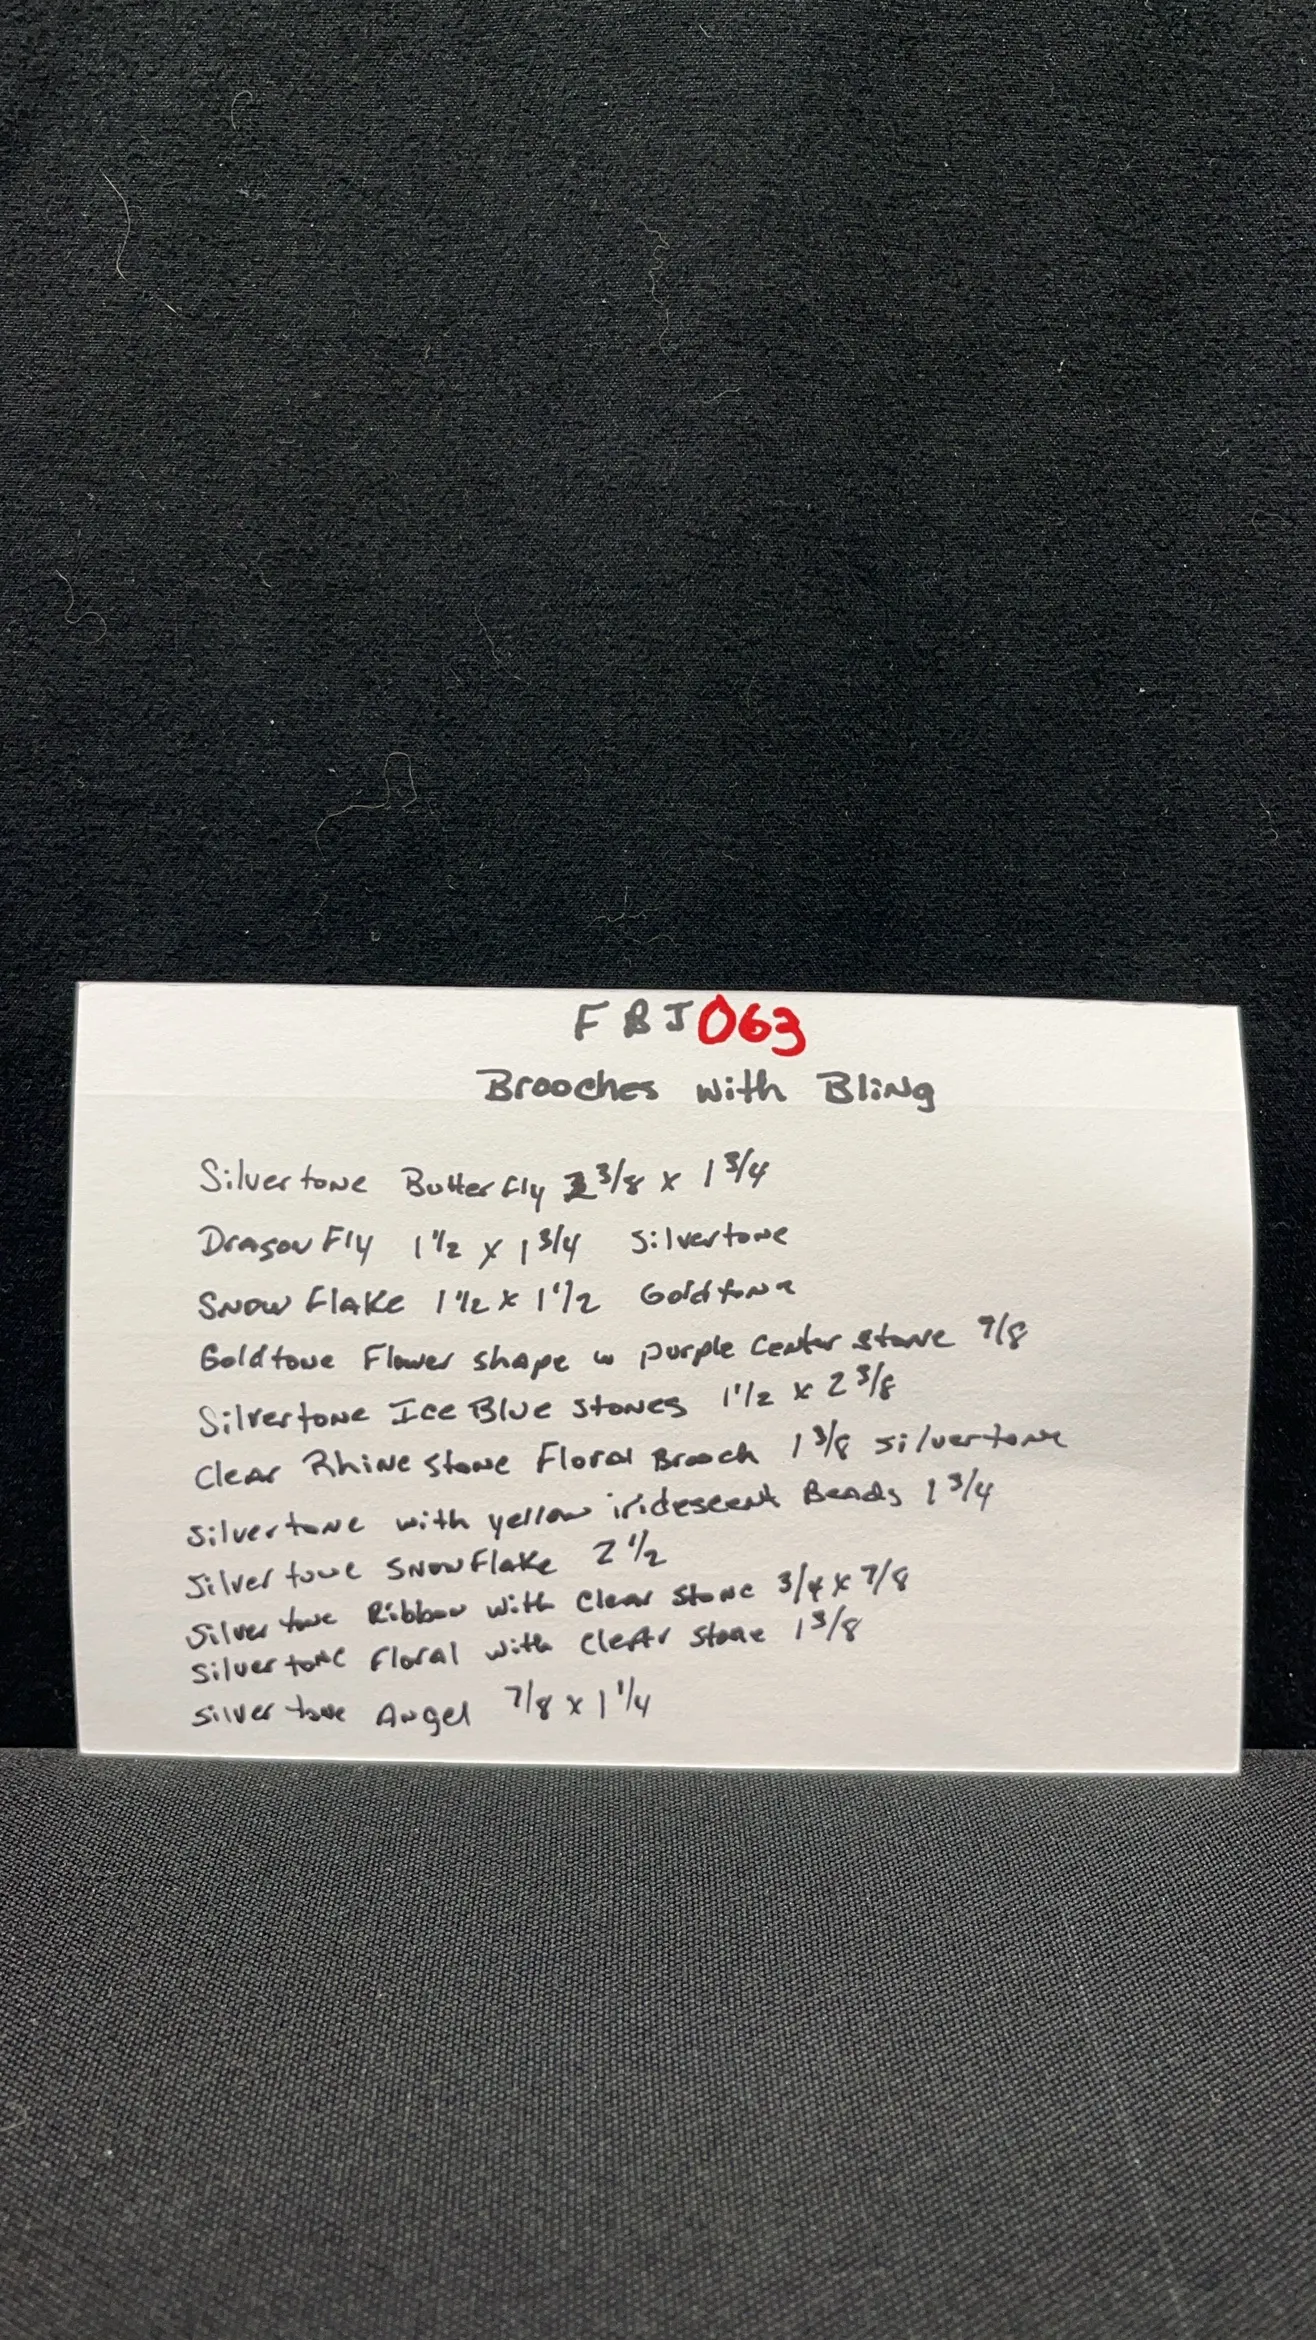 FBJ063
Brooches with Bling
Silvertone Butterfly 2 3/8 x 1 3/4
Dragonfly 1 1/2 x 1 3/4 Silvertone
Snowflake 1 1/2 x 1 1/2 Goldtone
Goldtone Flower shape w purple center stone 7/8
Silvertone Ice Blue stones 1 1/2 x 2 3/8
Clear Rhinestone Floral Brooch 1 3/8 silvertone
silvertone with yellow iridescent Beads 1 3/4
Silvertone Snowflake 2 1/2
Silvertone Ribbon with Clear Stone 3/4 x 7/8
silvertone Floral with Clear stone 1 3/8
silvertone Angel 7/8 x 1 1/4